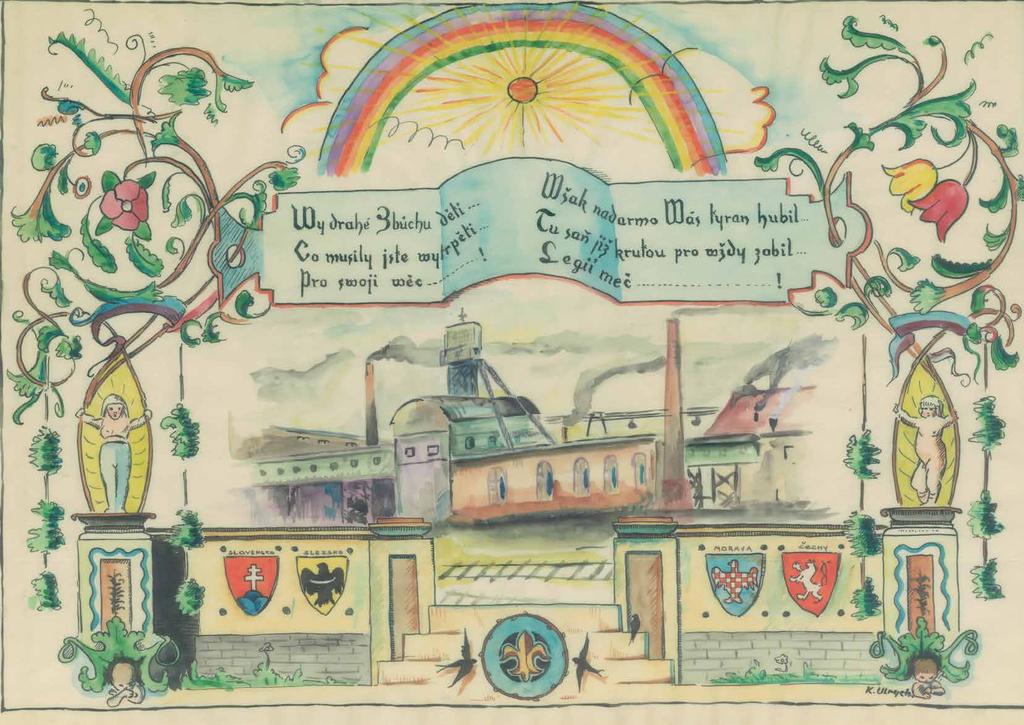 Wy drahé Zbúchu děti...
Co musily jste wytrpěti...
Pro swoji wěc ............ !
Wšak nadarmo Wás tyran hubil...
Tu saň již krutou pro wždy zobil...
Legií meč .................... !
SLOVENSKO
SLEZSKO
MORAVA
ČECHY
K. Ulrych